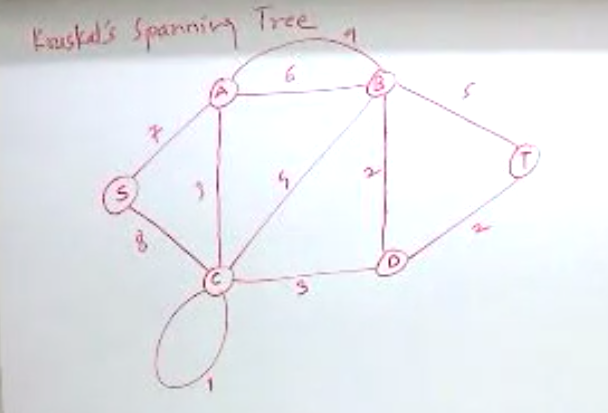 Kruskal's Spanning Tree
9
A
6
B
5
7
T
S
3
4
2
8
D
2
C
3
1